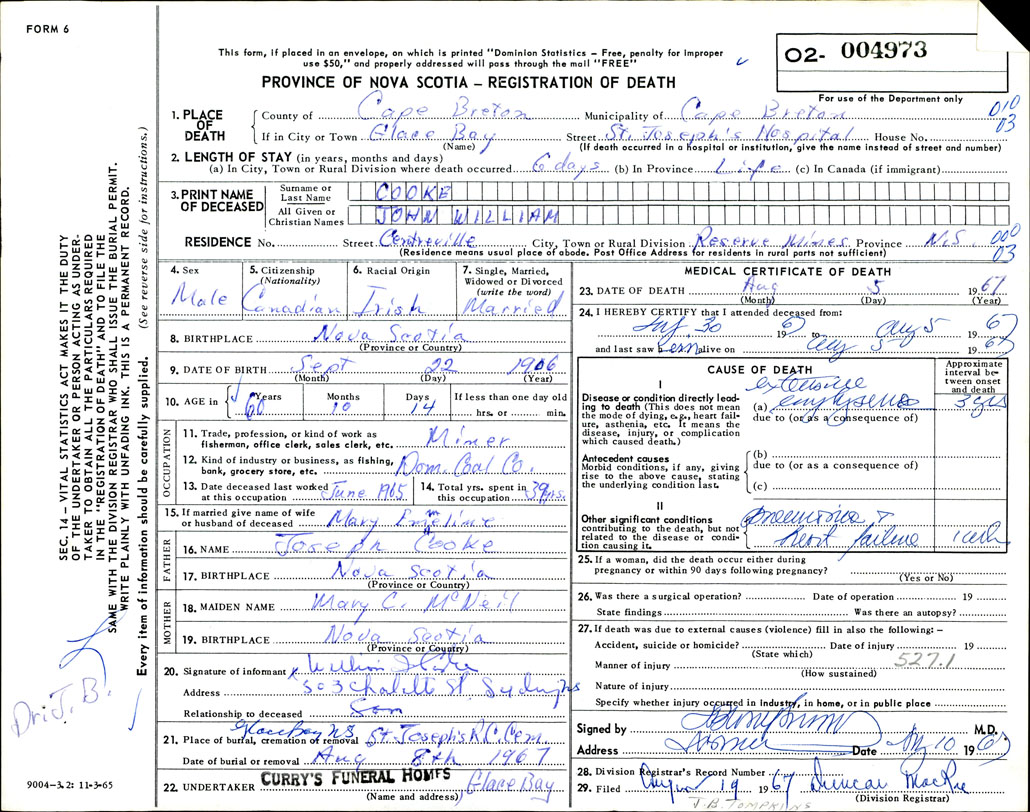 FORM 6
This form, if placed in an envelope, on which is printed "Dominion Statistics – Free, penalty for improper
use $50," and properly addressed will pass through the mail "FREE"
O2- 004973
For use of the Department only
PROVINCE OF NOVA SCOTIA – REGISTRATION OF DEATH
010
03
1. PLACE OF DEATH
County of Cape Breton Municipality of Cape Breton
If in City or Town Glace Bay Street St. Joseph's Hospital House No.
(Name) (If death occurred in a hospital or institution, give the name instead of street and number)
2. LENGTH OF STAY (in years, months and days)
(a) In City, Town or Rural Division where death occurred 6 days (b) In Province Life (c) In Canada (if immigrant)
3. PRINT NAME OF DECEASED
Surname or Last Name COOKE
All Given or Christian Names JOHN WILLIAM
RESIDENCE No. Street Centreville City, Town or Rural Division Reserve Mines Province N.S.
000
03
(Residence means usual place of abode. Post Office Address for residents in rural parts not sufficient)
4. Sex
Male
5. Citizenship
(Nationality)
Canadian
6. Racial Origin
Irish
7. Single, Married,
Widowed or Divorced
(write the word)
Married
8. BIRTHPLACE Nova Scotia
(Province or Country)
9. DATE OF BIRTH Sept 22 1906
(Month) (Day) (Year)
10. AGE in Years Months Days If less than one day old
60 10 14 hrs. or min.
OCCUPATION
11. Trade, profession, or kind of work as
fisherman, office clerk, sales clerk, etc. Miner
12. Kind of industry or business, as fishing,
bank, grocery store, etc. Dom. Coal Co.
13. Date deceased last worked
at this occupation June 1965
14. Total yrs. spent in
this occupation 39 yrs.
15. If married give name of wife
or husband of deceased Mary Emeline
FATHER
16. NAME Joseph Cooke
17. BIRTHPLACE Nova Scotia
(Province or Country)
MOTHER
18. MAIDEN NAME Mary C. McNeil
19. BIRTHPLACE Nova Scotia
(Province or Country)
20. Signature of informant William
Address 303 St Sydney NS
Relationship to deceased Son
Glace Bay NS
21. Place of burial, cremation or removal St. Joseph's R.C. Cem.
Date of burial or removal Aug 8th 1967
22. UNDERTAKER CURRY'S FUNERAL HOMES Glace Bay
(Name and address)
MEDICAL CERTIFICATE OF DEATH
23. DATE OF DEATH Aug 5 1967
(Month) (Day) (Year)
24. I HEREBY CERTIFY that I attended deceased from:
July 30 1967 to Aug 5 1967
and last saw him alive on Aug 5 1967
CAUSE OF DEATH
Approximate interval between onset and death
I
Disease or condition directly leading to death (This does not mean the mode of dying, e.g., heart failure, asthenia, etc. It means the disease, injury, or complication which caused death.)
extensive
(a) emphysema 5 yrs
due to (or as a consequence of)
Antecedent causes
Morbid conditions, if any, giving rise to the above cause, stating the underlying condition last.
(b)
due to (or as a consequence of)
(c)
II
Other significant conditions
contributing to the death, but not related to the disease or condition causing it.
Pneumonia +
heart failure 1 week
25. If a woman, did the death occur either during
pregnancy or within 90 days following pregnancy?
(Yes or No)
26. Was there a surgical operation? Date of operation 19
State findings Was there an autopsy?
27. If death was due to external causes (violence) fill in also the following: –
Accident, suicide or homicide? Date of injury 19
(State which)
527.1
Manner of injury
(How sustained)
Nature of injury
Specify whether injury occurred in Industry, in home, or in public place
Signed by M.D.
Address Date Aug 10 1967
28. Division Registrar's Record Number
29. Filed August 19 1967 Duncan MacRae
(Division Registrar)
J.B. TOMPKINS
SEC. 14 – VITAL STATISTICS ACT MAKES IT THE DUTY
OF THE UNDERTAKER OR PERSON ACTING AS UNDER-
TAKER TO OBTAIN ALL THE PARTICULARS REQUIRED
IN THE "REGISTRATION OF DEATH" AND TO FILE THE
SAME WITH THE DIVISION REGISTRAR WHO SHALL ISSUE THE BURIAL PERMIT.
WRITE PLAINLY WITH UNFADING INK. THIS IS A PERMANENT RECORD.
Every item of information should be carefully supplied. (See reverse side for instructions.)
Dr. J. B.
9004-3.2: 11-3-65